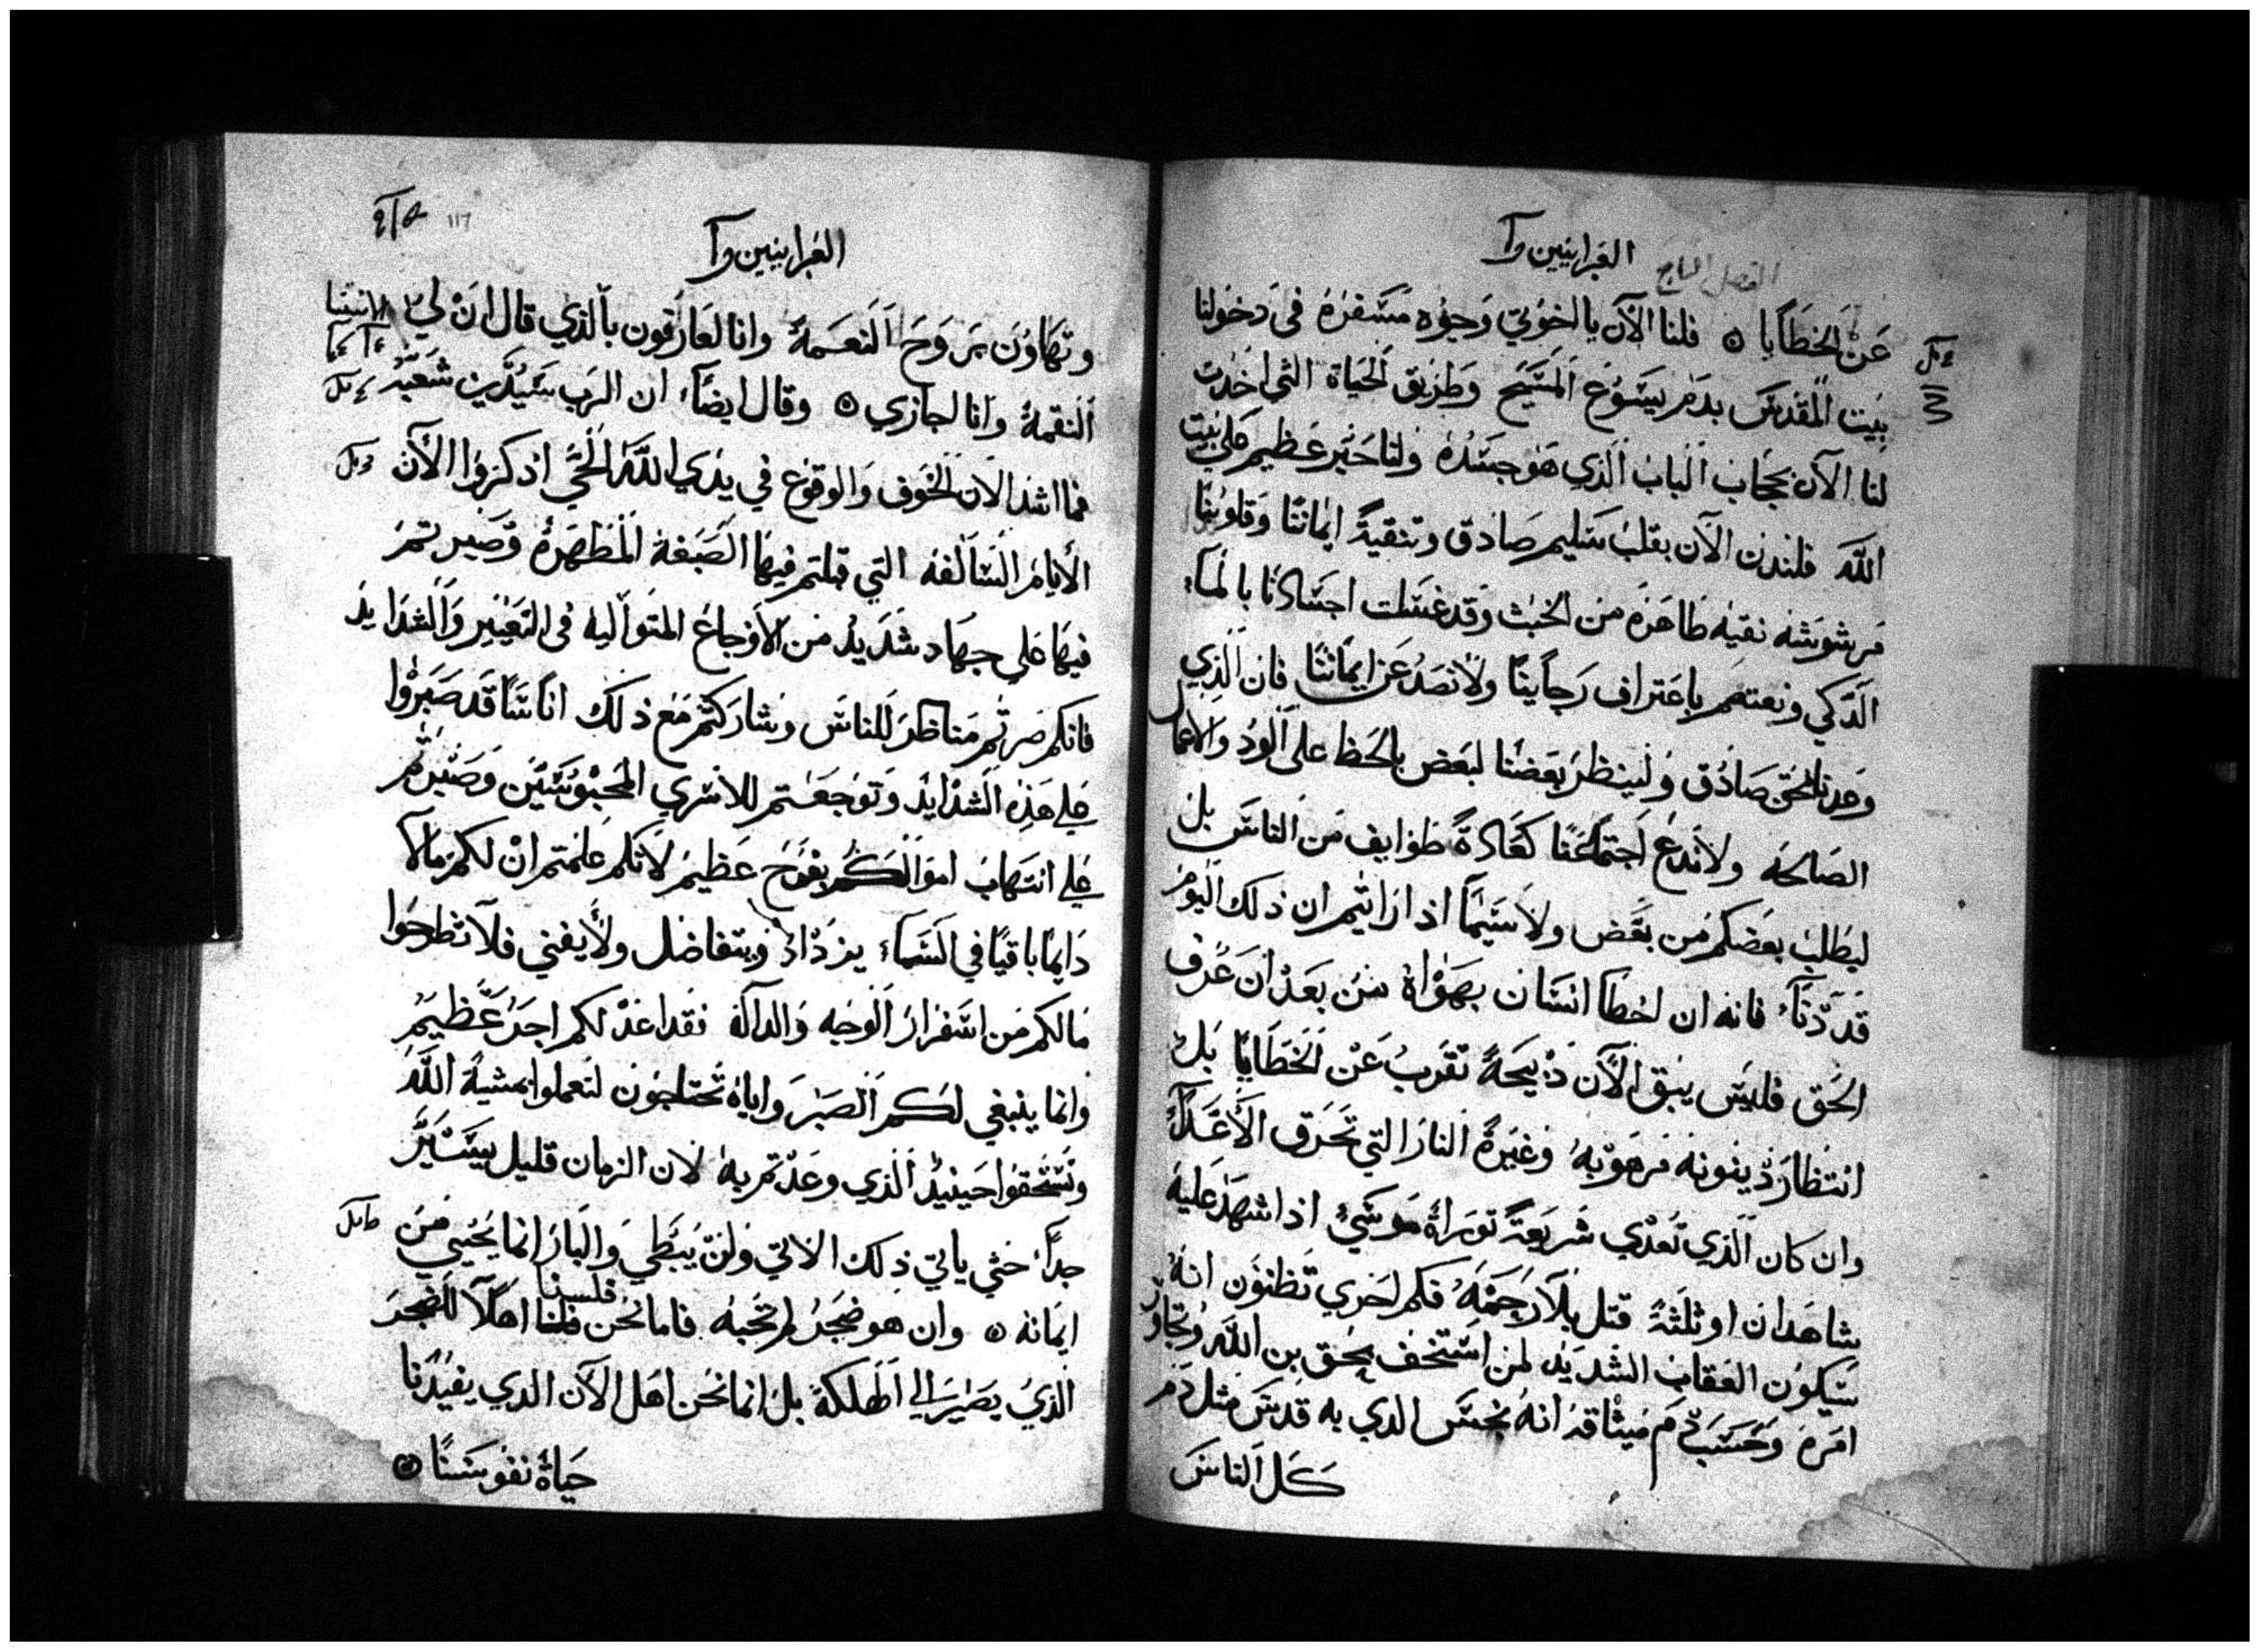 العبرانيين وآ
عَن الخطَايا ۞ فلنا الآن يا اخوتي وَجوُه مسَفرهُ في دَخولنا
بيَت المقَدسَ بدمَ يسَوُعَ المسَيحَ وَطريق الحيَاة التي اخذت
لنا الآن بحجَاب البابُ الذي هَوُ جسَدُهُ ولنا حَبرعَظيم علي بيَت
اللهَ فلندن الآن بقلبُ سَليم صَادق وتنقيةً ايماننا وقلوبنا
مَرشوشهَ نقيهَ طاهَرهً منَ الخبث وَقد غسَلت اجسَادنا بالماء
الَذكي ونعتصَم باعَتراف رَجاينا ولانصَدُ عَن ايماننا فان الذِي
وعَدنا لمحَق صَادُق وَلينظرَ بعَضنا لبعَض بالحَظ على الودُ والاعمال
الصَالحهَ ولاندعُ اجتماعَنا كعَادةً طوَايف منَ الناسَ بل
ليطلب بعَضكم من بعَض ولاسَيمَا اذا راتيم ان ذلك اليَومُ
قدَ دَنآء فانهَ ان اخطَا انسَان بهَوُاهُ منُ بعَدُ انَ عَرف
الحَق فليسَ يبَق الآن ذَبيحَةً تقَربُ عَنْ الخَطَايا بَل
انتظارَ دَينونه مَرهَوبهُ وَغيَرةً النارَ التي تحَرَق الأعَدَآءَ
وان كان الذي تعَدي شَريعَةً توَراةُ موَسَيُ اذا شهَدَ عَليه
شاهَدان اوثلَثهً قتل بلآرحَمَهُ فكم احَري تظنوُن انهُ
سَيكوُن العَقابُ الشديَد لمن استخف بحَق بن اللهَ وتجاوز
امَرهَ وَحَسَب دَم ميَثاقه انهُ نجسَ الذي به قدسَ مثل دَم
كلَ الناسَ
العبرانيين وآ
وتهَاوُنَ برَوحَ النعَمهً وانا لعَارَفون بالذي قال ان لي الانتقا
النقمهً وَانا اجازي ۞ وقال ايضاً ان الرَب سَيُدَين شعَبهُ
فما اشد الان الخوف وَالوقوع في يدَي اللهَ الحَي اذ كرَوا الآن
الأيامُ السَالفه التي قبلتم فيهَا الصَبغة المطهَرهُ وَصَبرتم
فيهَا عَلي جهَاد شدَيدُ منَ الأوَجاعُ المتوَاليهُ في التعَييَر وَالشدَايدَ
فانكم صَرتمُ مَناظرَ للناسَ وَشارَكتمُ مَع ذلك اناسَاً قدَ صَبَرُوا
عَلي هَذه الشدايَد وَتوَجعَتم للاسَري المحَبوُسَيَن وَصَبَرتمُ
عَلي انتهَابُ اموَالكُم بفرَحَ عَظيم لأنكم عَلمتم ان لكم مالآ
دَايمًا باقيًا في السَماء يزدادُ وَيتفاضَل ولأيفني فلآتطرحَوا
مَالكم من اسَفرارَ الوَجه وَالدالَه فقد اعَدُ لكم اجَرُعَظَيم
وانما ينبغي لكم الصَبرَ واياهُ تحتاجوُن لتعَملوا بمشيَهُ اللهَُ
وتسَتحَقوُا حَينيذَ الذي وعَدتم بهُ لان الزمان قليل يسَيَر
جداً حَتي ياتي ذلك الاتي وَلن يُبَطي وَالبارَ انما يحَيي منَ
ايمَانه ۞ وان هو ضجرَ لم تحبهُ فاما نحَن فلسنا اهَلآ للضجرَ
الذيُ يصَيَر الي الهَلكة بل انما نحَن اهَل الآن الذي يفيُدنا
حَياة نفوَسَنا ۞